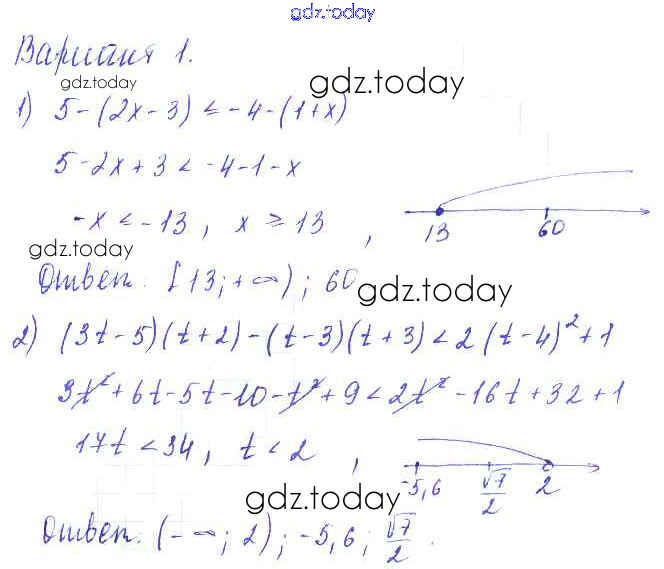 gdz.today
Вариант 1.
gdz.today
gdz.today
1) 5-(2x-3) ≤ -4-(1+x)
5-2x+3 < -4-1-x
-x ≤ -13, x ≥ 13,
13 60
gdz.today
Ответ: [13; +∞); 60
gdz.today
2) (3t-5)(t+2)-(t-3)(t+3) < 2(t-4)²+1
3t²+6t-5t-10-t²+9 < 2t²-16t+32+1
17t < 34, t < 2,
-5,6 √7/2 2
gdz.today
Ответ: (-∞; 2); -5,6; √7/2.